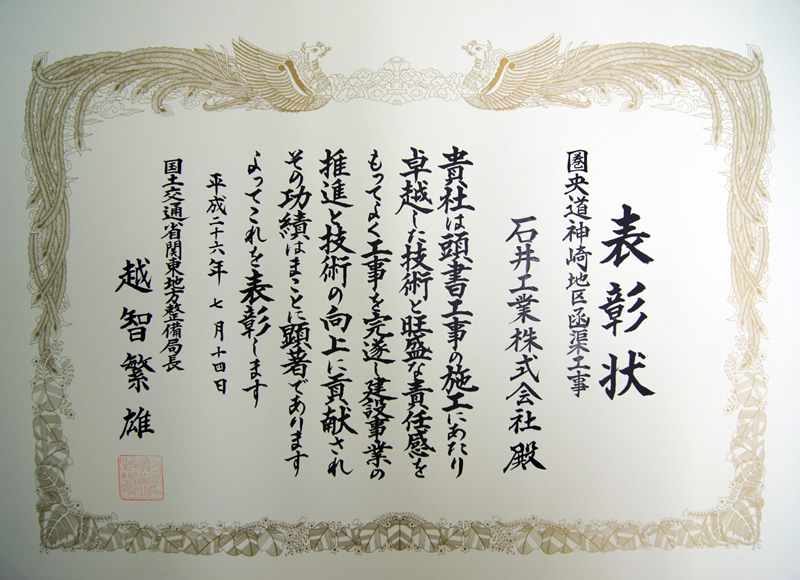 表彰状
圏央道神崎地区函渠工事
石井工業株式会社殿
貴社は頭書工事の施工にあたり
卓越した技術と旺盛な責任感を
もってよく工事を完遂し建設事業の
推進と技術の向上に貢献され
その功績はまことに顕著であります
よってこれを表彰します
平成二十六年七月十四日
国土交通省関東地方整備局長
越智繁雄